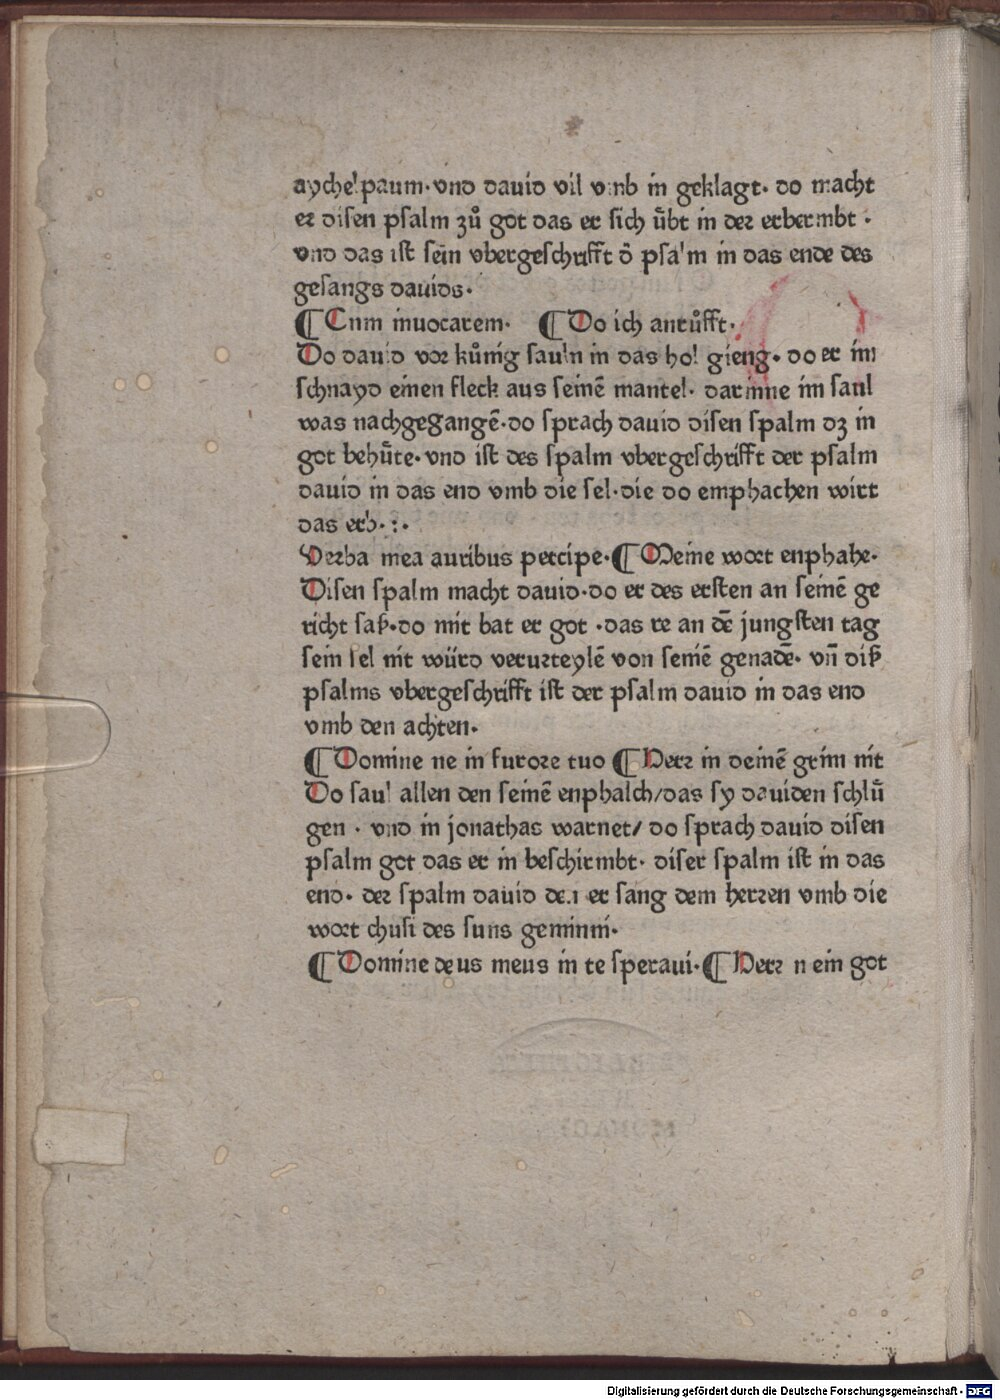 aychelpaum· vnd dauid vil vmb in geklagt· do macht
er disen psalm zů got das er sich ům̈bt in der erbermbt ·
vnd das ist sein vbergeschrifft d̄ psalm in das ende des
gesangs dauids·
¶ Cum inuocarem· ¶ Do ich anrůfft·
Do dauid vor kůnig sauln in das hol gieng· do er im
schnayd einen fleck aus seinē mantel· darinne im saul
was nachgegangē·do sprach dauid disen spalm dz in
got behům̈te· vnd ist des spalm vbergeschrifft der psalm
dauid in das end vmb die sel·die do emphachen wirt
das erb·:·
Verba mea auribus percipe·¶ Meine wort enphahe·
Disen spalm macht dauid·do er des ersten an seinē ge
richt saß·do mit bat er got ·das re an dē jungsten tag
sein sel nit würd verurteylē von seinē genadē· vn̄ diß
psalms vbergeschrifft ist der psalm dauid in das end
vmb den achten·
¶ Domine ne in furore tuo ¶ Herr in deinē grim nit
Do saul allen den seinē enphalch/das sy dauiden schlü
gen · vnd in jonathas warnet/ do sprach dauid disen
psalm got das er in beschirmbt· diser spalm ist in das
end· der spalm dauid den er sang dem herren vmb die
wort chusi des suns geminni·
¶ Domine deus meus in te speraui·¶ Herr mein got
Digitalisierung gefördert durch die Deutsche Forschungsgemeinschaft · DFG